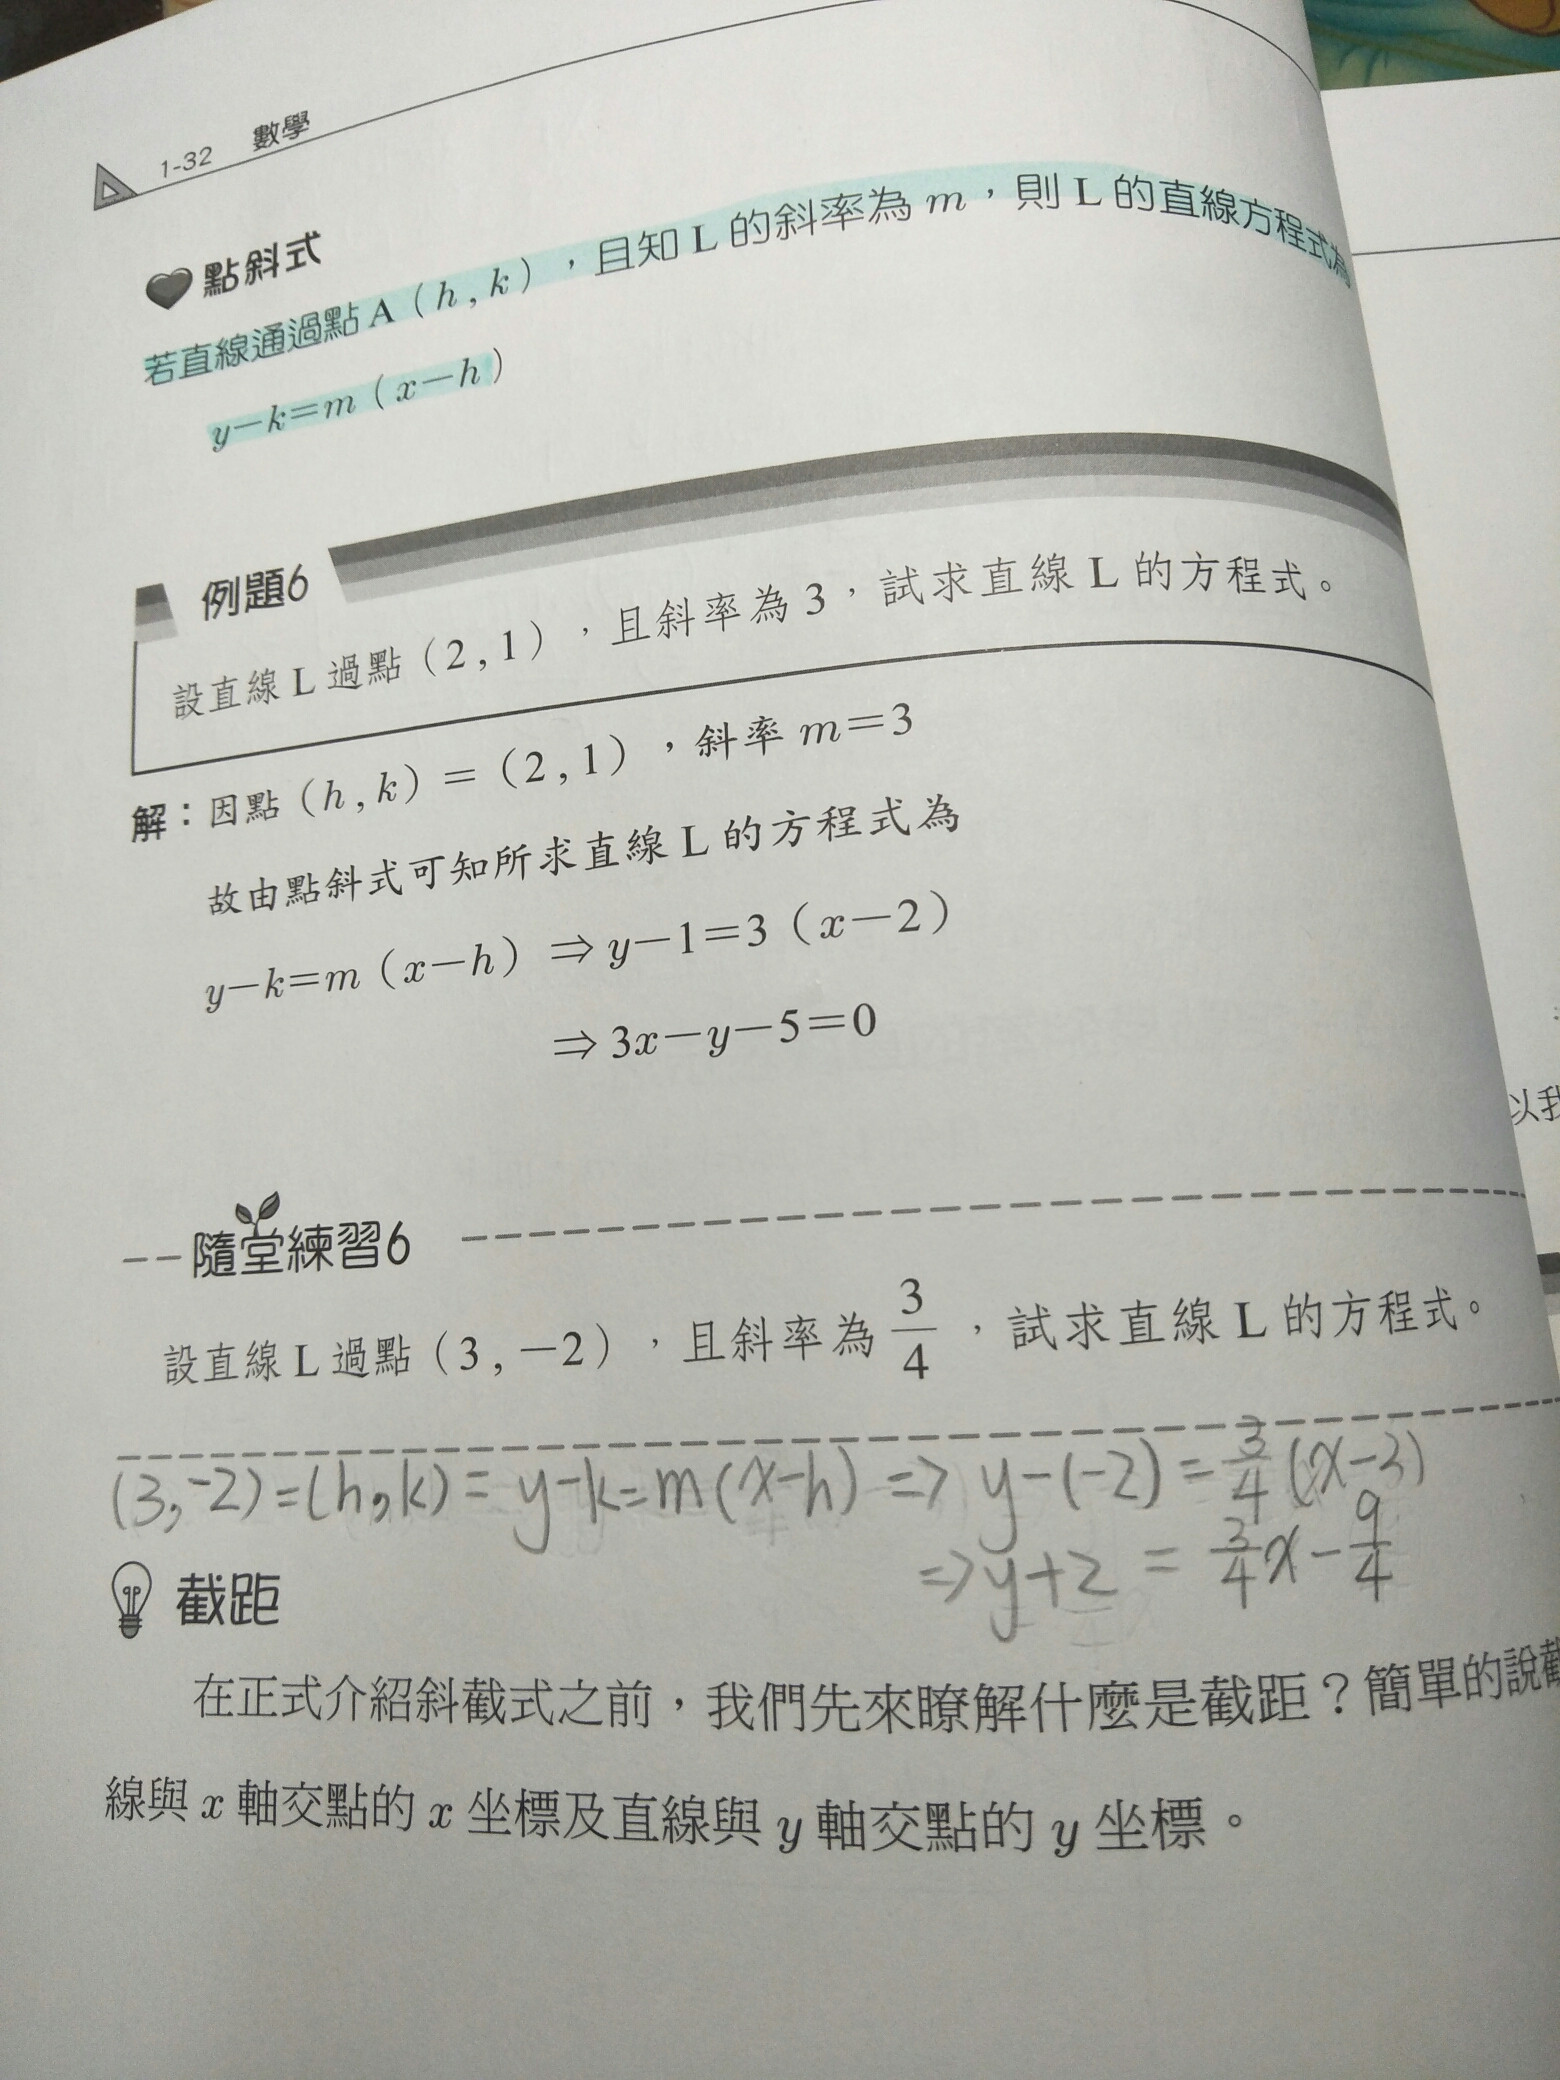 1-32 數學
點斜式
若直線通過點A(h,k),且知L的斜率為m,則L的直線方程式為
y-k=m(x-h)
例題6
設直線L過點(2,1),且斜率為3,試求直線L的方程式。
解:因點(h,k)=(2,1),斜率m=3
故由點斜式可知所求直線L的方程式為
y-k=m(x-h)⇒y-1=3(x-2)
⇒3x-y-5=0
隨堂練習6
設直線L過點(3,-2),且斜率為3/4,試求直線L的方程式。
(3,-2)=(h,k)= y-k=m(x-h) => y-(-2)=3/4(x-3)
=>y+2 = 3/4x-9/4
截距
在正式介紹斜截式之前,我們先來瞭解什麼是截距?簡單的說截
線與x軸交點的x坐標及直線與y軸交點的y坐標。
以我